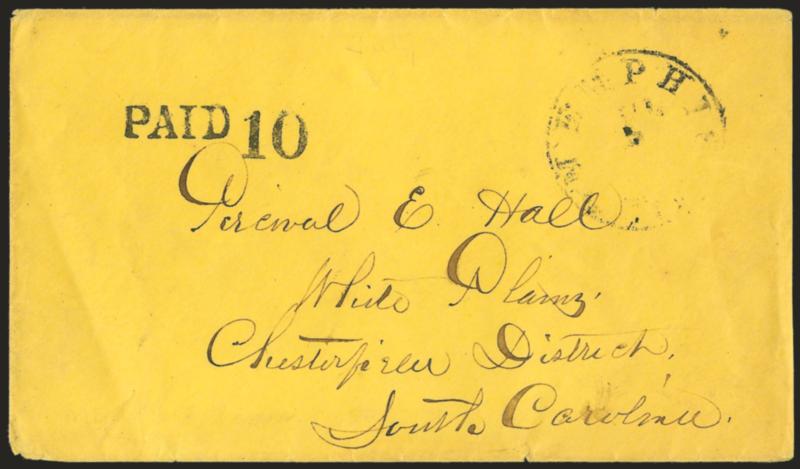 PAID 10
MEMPHIS
Percival E. Hall.
White Plains,
Chesterfield District,
South Carolina.